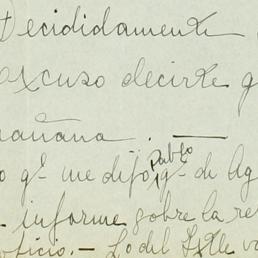 Decididamente
excuso decirte q
mañana. —
o q.e me dijo Pablo q.e de Ag
informe sobre la re
oficio. — Lo del